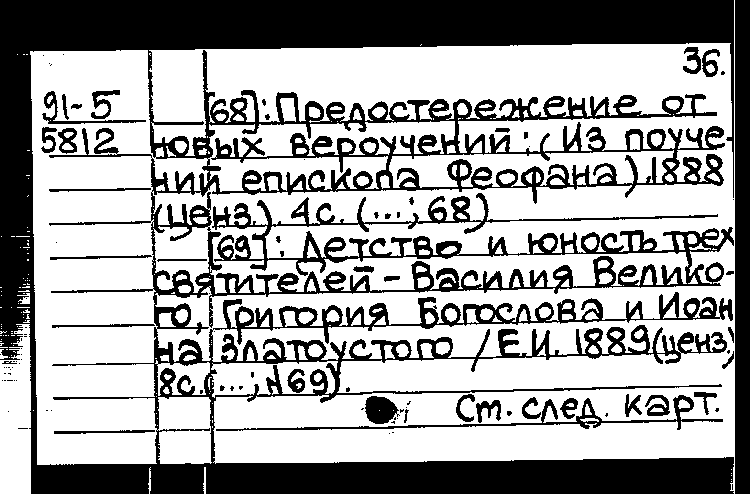 36.
91-5 [68]: Предостережение от
5812 новых вероучений: (Из поуче-
ний епископа Феофана). 1888
(ценз.). 4с. (...; 68).
[69]: Детство и юность трех
святителей - Василия Велико-
го, Григория Богослова и Иоан
на Златоустого / Е.И. 1889 (ценз.)
8с. (...; №69).
Ст. след. карт.